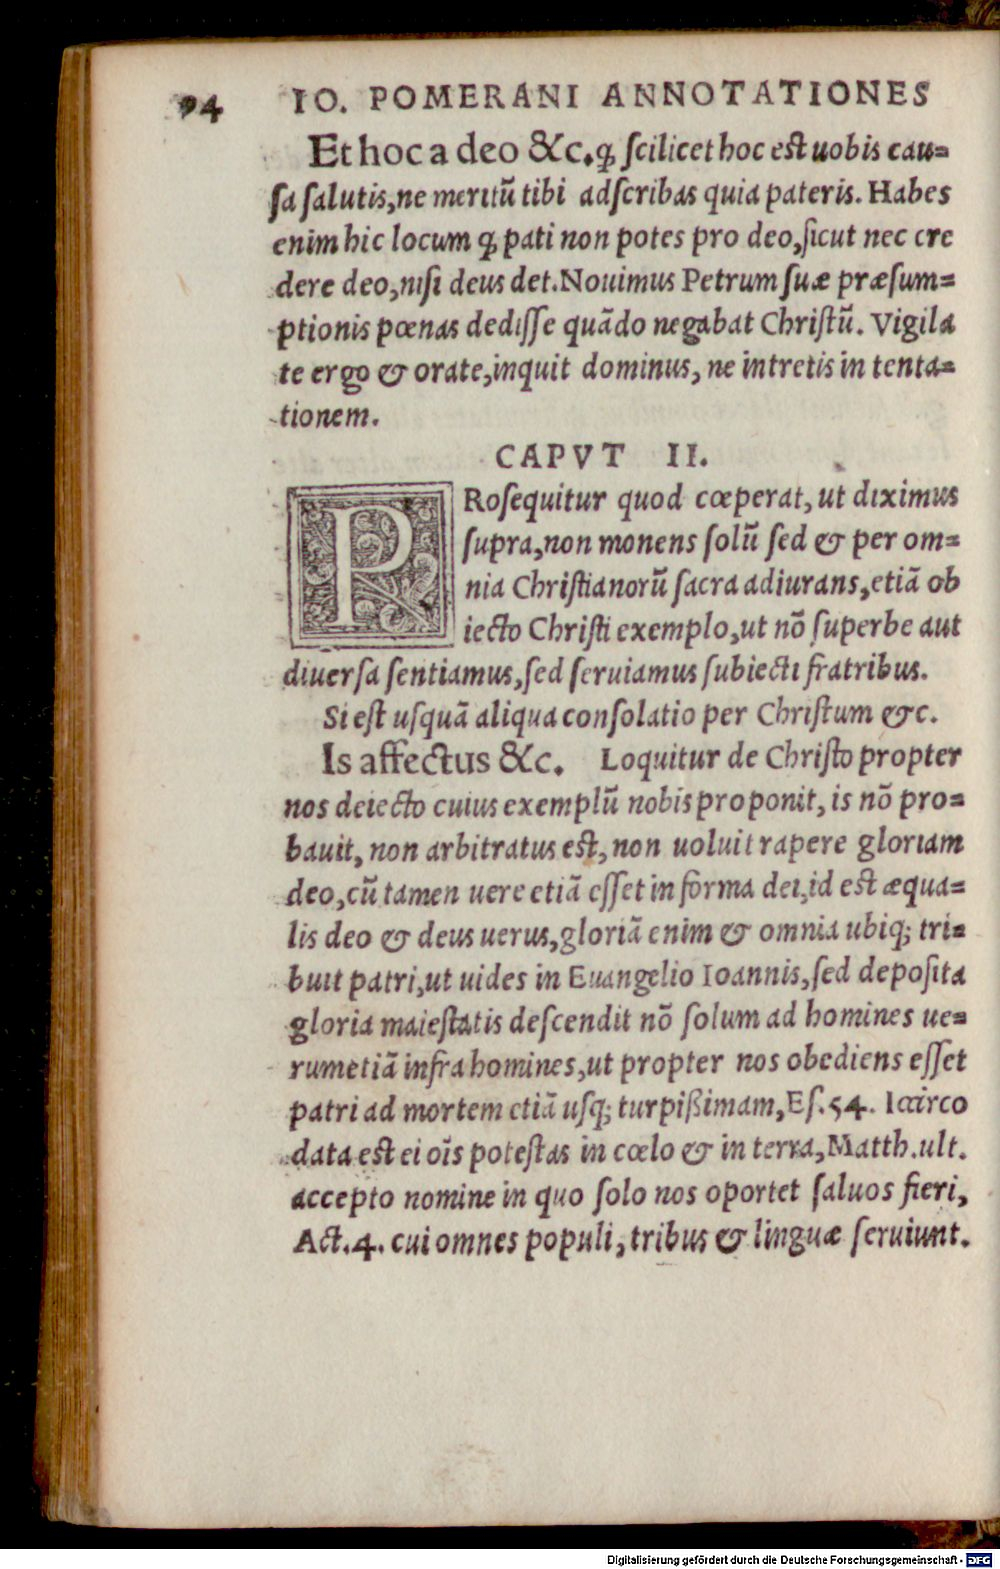 94 IO. POMERANI ANNOTATIONES
Et hoc a deo &c. ꝙ ſcilicet hoc est uobis cau=
ſa ſalutis, ne meritũ tibi adſcribas quia pateris. Habes
enim hic locum ꝙ pati non potes pro deo, ſicut nec cre
dere deo, niſi deus det. Nouimus Petrum ſuæ præſum=
ptionis pœnas dediſſe quãdo negabat Chriſtũ. Vigila
te ergo & orate, inquit dominus, ne intretis in tenta=
tionem.
CAPVT II.
PRoſequitur quod cœperat, ut diximus
ſupra, non monens ſolũ ſed & per om=
nia Chriſtianorũ ſacra adiurans, etiã ob
iecto Chriſti exemplo, ut nõ ſuperbe aut
diuerſa ſentiamus, ſed ſeruiamus ſubiecti fratribus.
Si eſt uſquã aliqua conſolatio per Chriſtum &c.
Is affectus &c. Loquitur de Chriſto propter
nos deiecto cuius exemplũ nobis proponit, is nõ pro=
bauit, non arbitratus eſt, non uoluit rapere gloriam
deo, cũ tamen uere etiã eſſet in forma dei, id eſt æqua=
lis deo & deus uerus, gloriã enim & omnia ubiq; tri=
buit patri, ut uides in Euangelio Ioannis, ſed depoſita
gloria maieſtatis deſcendit nõ ſolum ad homines ue=
rumetiã infra homines, ut propter nos obediens eſſet
patri ad mortem etiã uſq; turpißimam, Eſ. 54. Idcirco
data eſt ei oĩs poteſtas in cœlo & in terra, Matth. ult.
accepto nomine in quo ſolo nos oportet ſaluos fieri,
Act. 4. cui omnes populi, tribus & linguæ ſeruiunt.
Digitalisierung gefördert durch die Deutsche Forschungsgemeinschaft - DFG